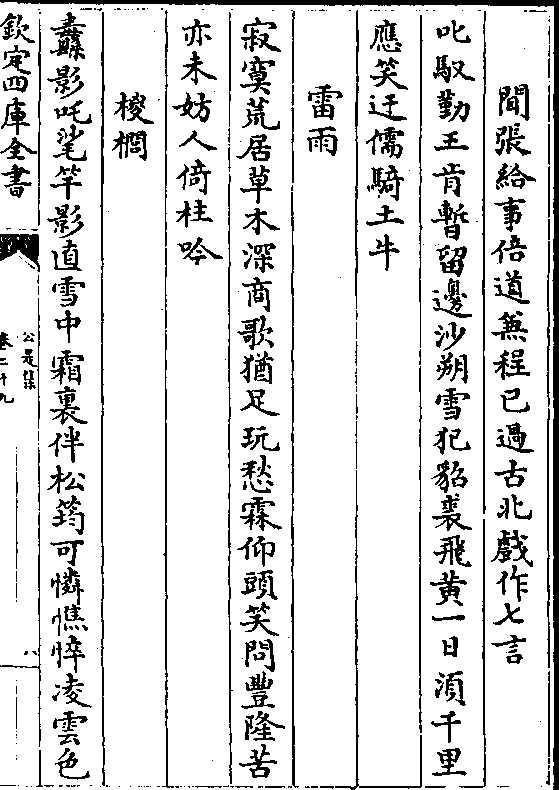 聞張給事倍道兼程已過古北戲作七言
叱馭勤王肯暫留邊沙朔雪犯貂裘飛黃一日須千里
應笑迂儒騎土牛
雷雨
寂寞荒居草木深商歌猶足玩愁霖仰頭笑問豐隆苦
亦未妨人倚柱吟
椶櫚
纛影吒髿竿影直雪中霜裏伴松筠可憐憔悴凌雲色
欽定四庫全書
公是集
卷二十九
八